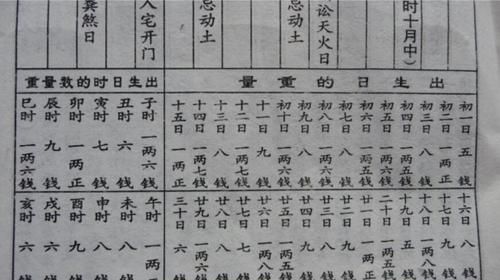 时十月中）
讼天火日
忌动土
忌动土
人宅开门
煞日
出生日的重量
初一日 五錢
初二日 一两正
初三日 八錢
初四日 一两五錢
初五日 一两六錢
初六日 一两五錢
初七日 八錢
初八日 一两六錢
初九日 八錢
初十日 一两六錢
十一日 九錢
十二日 一两七錢
十三日 八錢
十四日 一两七錢
十五日 一两正
十六日 八
十七日 九
十八日 一两八
十九日 五
二十日 一两五
廿一日 一两
廿二日 九
廿三日 八
廿四日 九
廿五日 一两五
廿六日 一两八
廿七日 七
廿八日 八
廿九日 一两六
三十日 六
出生日时的数量重
子时 一两六錢
丑时 六錢
寅时 七錢
卯时 一两正
辰时 九錢
巳时 一两六錢
午时 一两
未时 八
申时 八
酉时 九
戌时 六
亥时 六